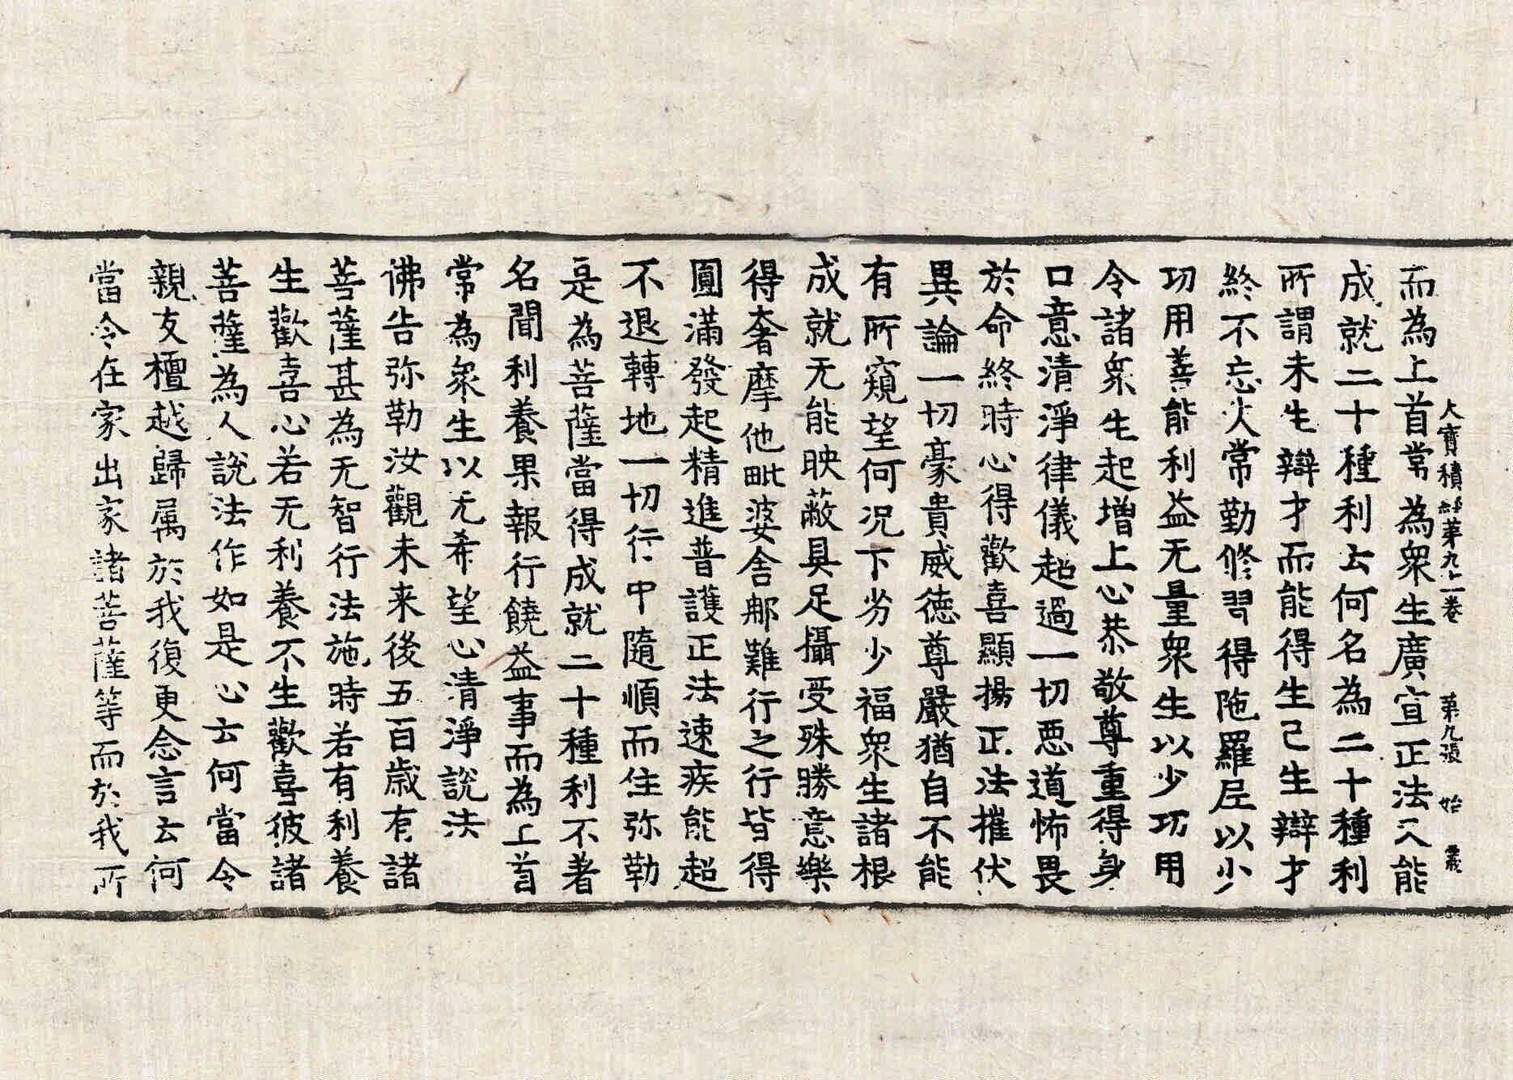 大寶積經第九十二卷 第九張 始
而為上首常為衆生廣宣正法又能
成就二十種利云何名為二十種利
所謂未生辯才而能得生已生辯才
終不忘失常勤修習得陁羅尼以少
功用善能利益无量衆生以少功用
令諸衆生起增上心恭敬尊重得身
口意清淨律儀超過一切惡道怖畏
於命終時心得歡喜顯揚正法摧伏
異論一切豪貴威德尊嚴猶自不能
有所窺望何况下劣少福衆生諸根
成就无能映蔽具足攝受殊勝意樂
得奢摩他毗婆舍那難行之行皆得
圓滿發起精進普護正法速疾能超
不退轉地一切行中隨順而住弥勒
是為菩薩當得成就二十種利不著
名聞利養果報行饒益事而為上首
常為衆生以无希望心清淨說法
佛告弥勒汝觀未来後五百歲有諸
菩薩甚為无智行法施時若有利養
生歡喜心若无利養不生歡喜彼諸
菩薩為人說法作如是心云何當令
親友檀越歸属於我復更念言云何
當令在家出家諸菩薩等而於我所